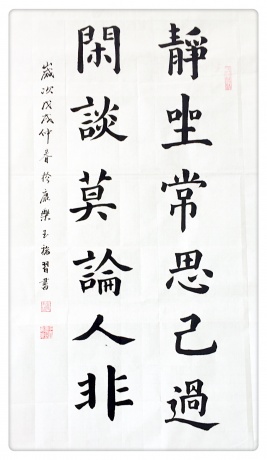 靜坐常思己過
閑談莫論人非
歲次戊戌仲春於康樂王梅習書